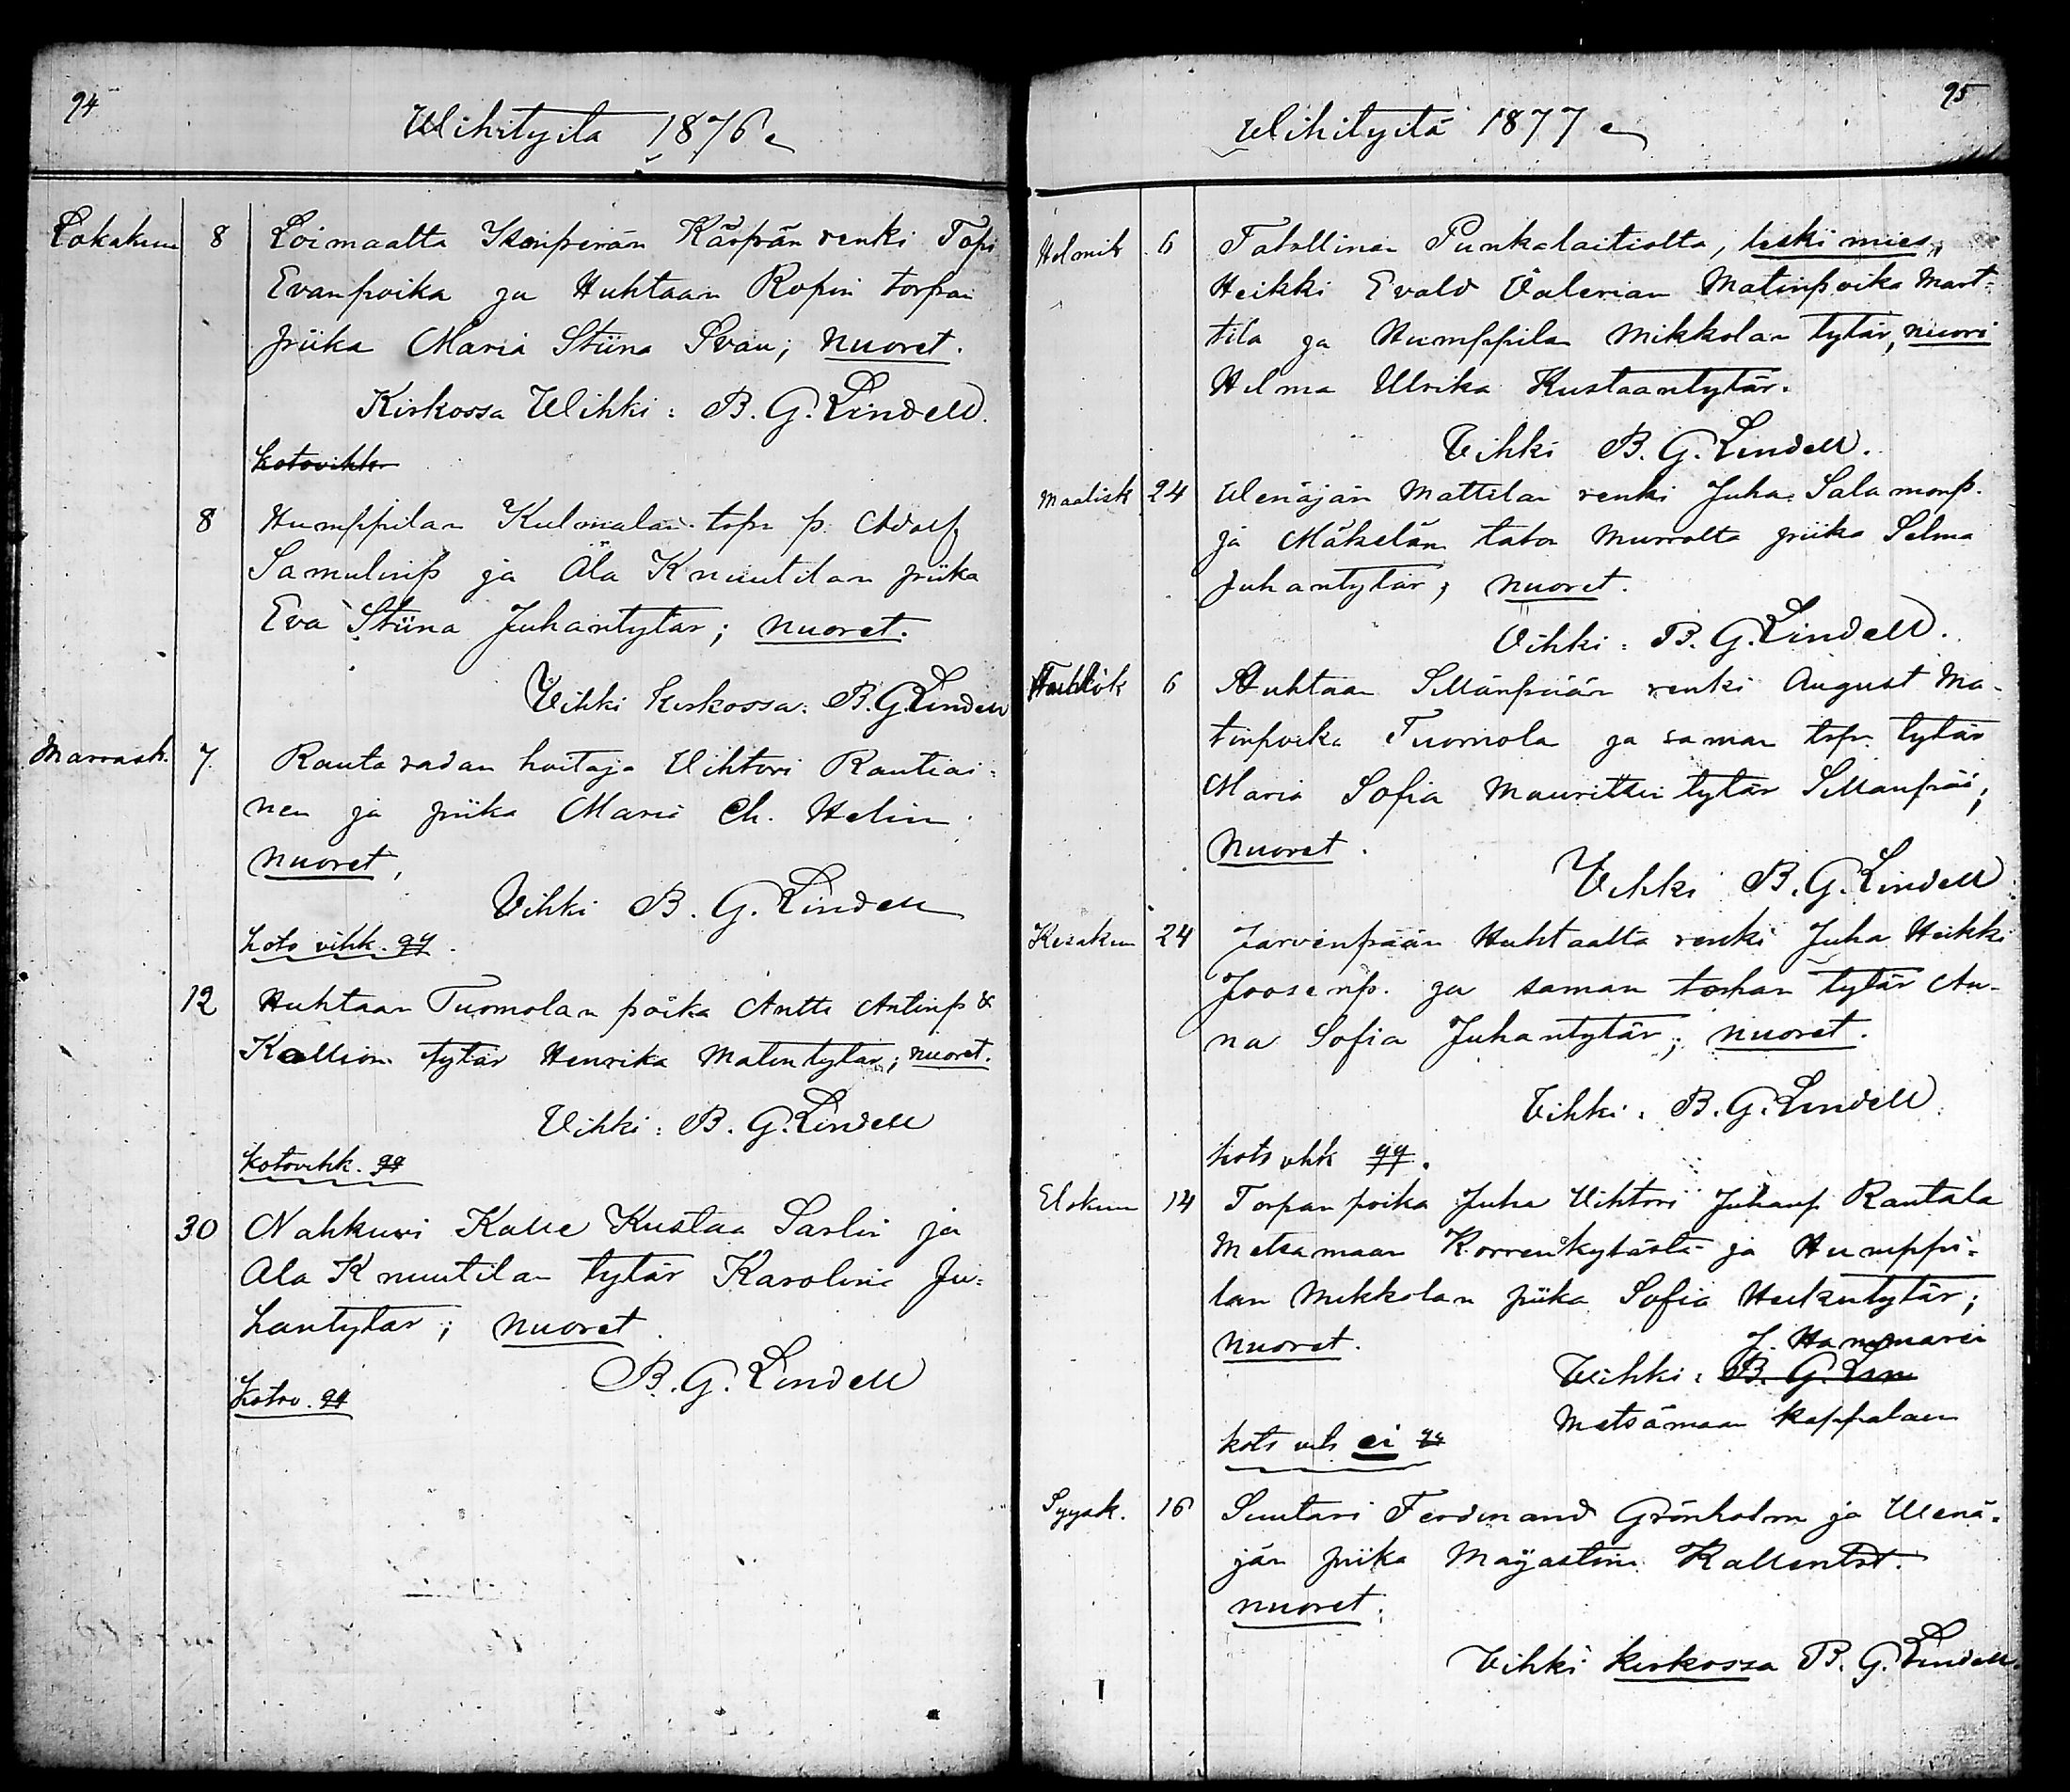 94
Wihityitä 1876
Lokakuu 8 Loimaalta Isonperän Käspän renki Topi
Evanpoika ja Huhtaan Ropin torpan
piika Maria Stiina Svan; nuoret.
Kirkossa Wihki: B. G. Lindell.
kotovihk
8 Humppilan Kulmalan torp. p. Adolf
Samulinp ja Ala Knuutilan piika
Eva Stiina Juhantytär; nuoret.
Vihki kirkossa: B. G. Lindell
Marrask. 7. Rautaradan hoitaja Vihtori Rautiai-
nen ja piika Maria Ch. Helin
nuoret,
Vihki B. G. Lindell
koto vihk.
12 Huhtaan Tuomolan poika Antti Antinp &
Kallion tytär Henrika Matintytär; nuoret.
Vihki: B. G. Lindell
kotovihk.
30 Nahkuri Kalle Kustaa Sarlin ja
Ala Knuutilan tytär Karolina Ju-
hantytär; nuoret
B. G. Lindell
kotov.
95
Wihityitä 1877
Helmik 6 Talollinen Punkalaitiolta, leski mies,
Heikki Evald Valerian Matinpoika Mart-
tila ja Humppilan Mikkolan tytär, nuori
Helma Ulrika Kustaantytär.
Vihki B. G. Lindell.
Maalisk 24 Wenäjän Mattilan renki Juha Salamonp.
ja Mäkelän talon Murrolta piika Selma
Juhantytär; nuoret.
Vihki: B. G. Lindell.
6 Huhtaan Sillanpään renki August Ma-
tinpoika Tuomola ja saman torp. tytär
Maria Sofia Maurittzin tytär Sillanpää;
nuoret.
Vihki B. G. Lindell
Kesäkuu 24 Jarvenpään Huhtaalta renki Juha Heikki
Joosenp. ja saman tytär An-
na Sofia Juhantytär; nuoret.
Vihki: B. G. Lindell
koto vhk
Elokuu 14 Torpan poika Juha Vihtori Juhanp Rautala
Metsamaan Korrenkylästä ja Humppi-
lan Mikkolan piika Sofia Heikintytär;
nuoret. J. Hammarén
Vihki: B. G. Lin
Metsämaan kappalaen
koto vih ei
Syysk. 16 Suutari Ferdinand Grönholm ja Wenä-
jän piika Majastina Kallentrt.
nuoret.
Vihki kirkossa B. G. Lindell